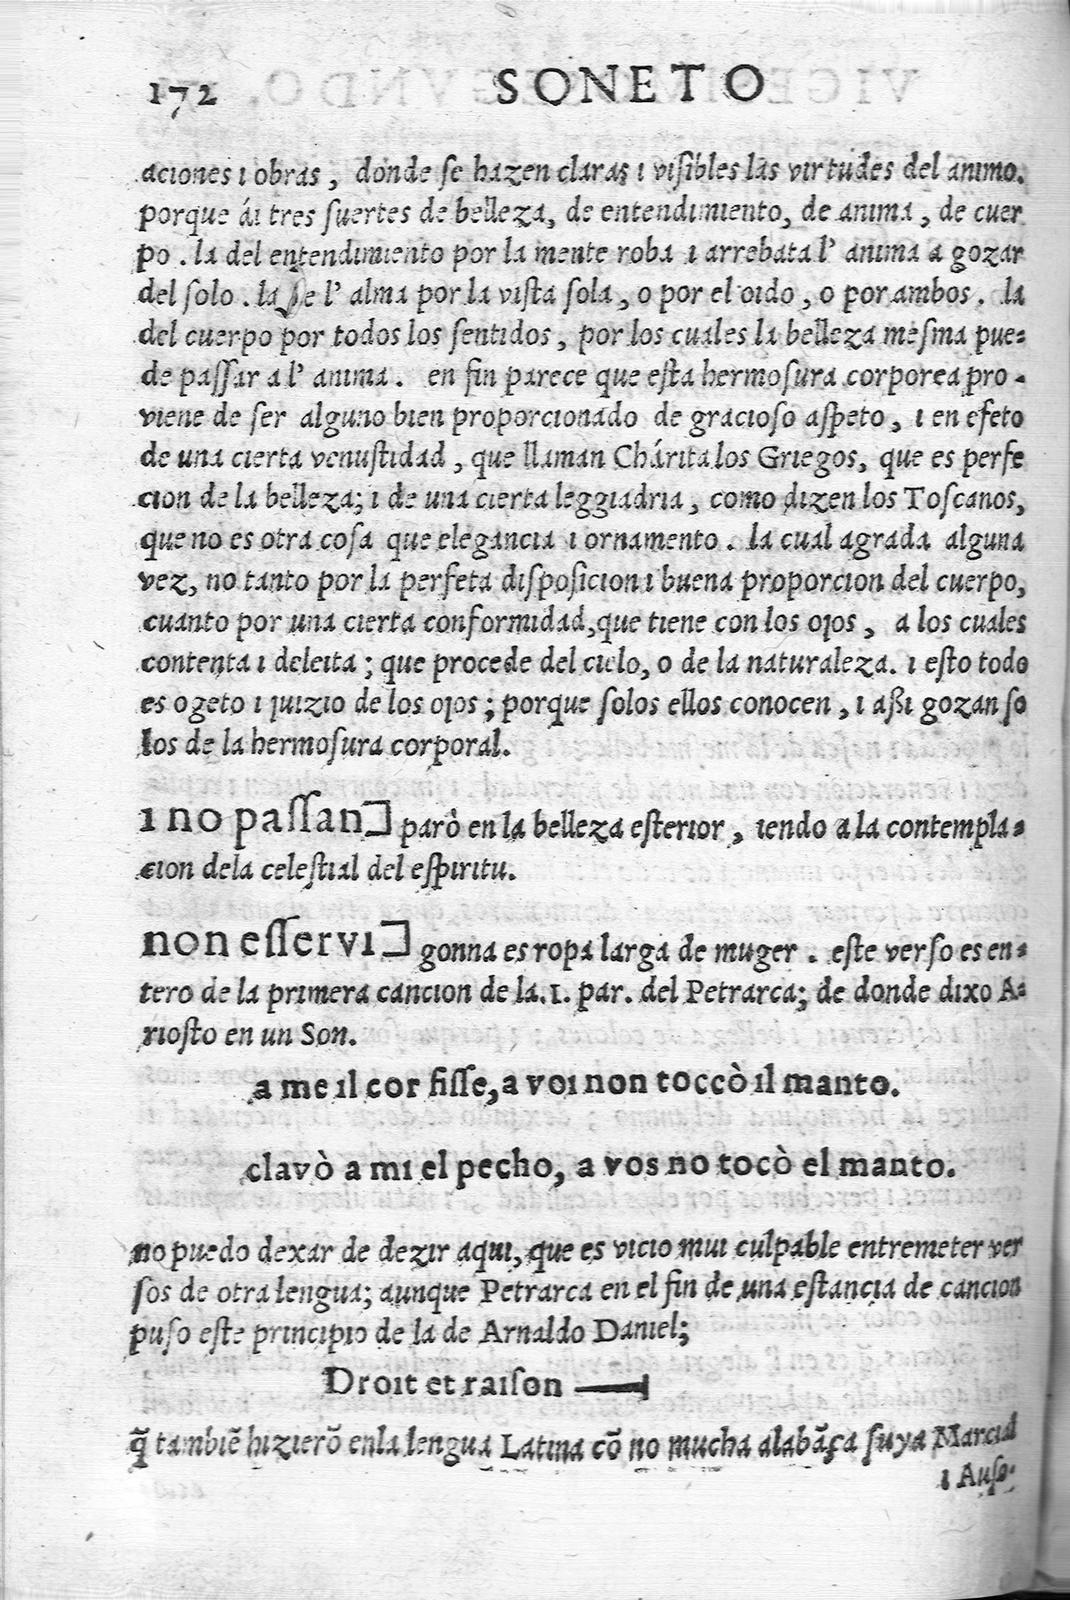 172 SONETO
aciones ı obras, donde se hazen claras ı visibles las virtudes del animo.
porque ái tres suertes de belleza, de entendimiento, de anima, de cuer
po. la del entendimiento por la mente roba ı arrebata l' anima a gozar
del solo. la de l' alma por la vista sola, o por el oido, o por ambos. la
del cuerpo por todos los sentidos, por los cuales la belleza mesma pue=
de passar a l' anima. en fin parece que esta hermosura corporea pro-
viene de ser alguno bien proporcionado de gracioso aspeto, ı en efeto
de una cierta venustidad, que llaman Chárita los Griegos, que es perfe
cion de la belleza; ı de una cierta leggiadria, como dizen los Toscanos,
que no es otra cosa que elegancia ı ornamento. la cual agrada alguna
vez, no tanto por la perfeta disposicion ı buena proporcion del cuerpo,
cuanto por una cierta conformidad, que tiene con los ojos, a los cuales
contenta ı deleita; que procede del cielo, o de la naturaleza. ı esto todo
es ogeto ı juizio de los ojos; porque solos ellos conocen, ı assi gozan so
los de la hermosura corporal.
ı no passan] parò en la belleza esterior, iendo a la contempla=
cion dela celestial del espiritu.
non esservi] gonna es ropa larga de muger. este verso es en=
tero de la primera cancion de la.1. par. del Petrarca; de donde dixo A=
riosto en un Son.
a me il cor fisse, a voi non toccò il manto.
clavò a mi el pecho, a vos no tocò el manto.
no puedo dexar de dezir aqui, que es vicio mui culpable entremeter ver
sos de otra lengua; aunque Petrarca en el fin de una estancia de cancion
puso este principio de la de Arnaldo Daniel;
Droit et raison
q̃ tambiẽ hizierõ enla lengua Latina cõ no mucha alabãça suya Marcial
ı Auso-